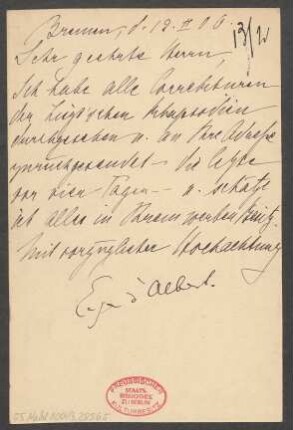 Bremen, d. 12. II 06.
13/II
Sehr geehrte Herrn,
Ich habe alle Correkturen
der Liszt'schen Rhapsodien
durchgesehen u. an Ihre Adresse
zurückgesendet – die letzte
vor vier Tagen – u.
ist alles in Ihrem werten Besitz.
Mit vorzüglicher Hochachtung
Eugen d'Albert.
PREUSSISCHER
STAATS-
BIBLIOTHEK
ZU BERLIN
KULTURBESITZ